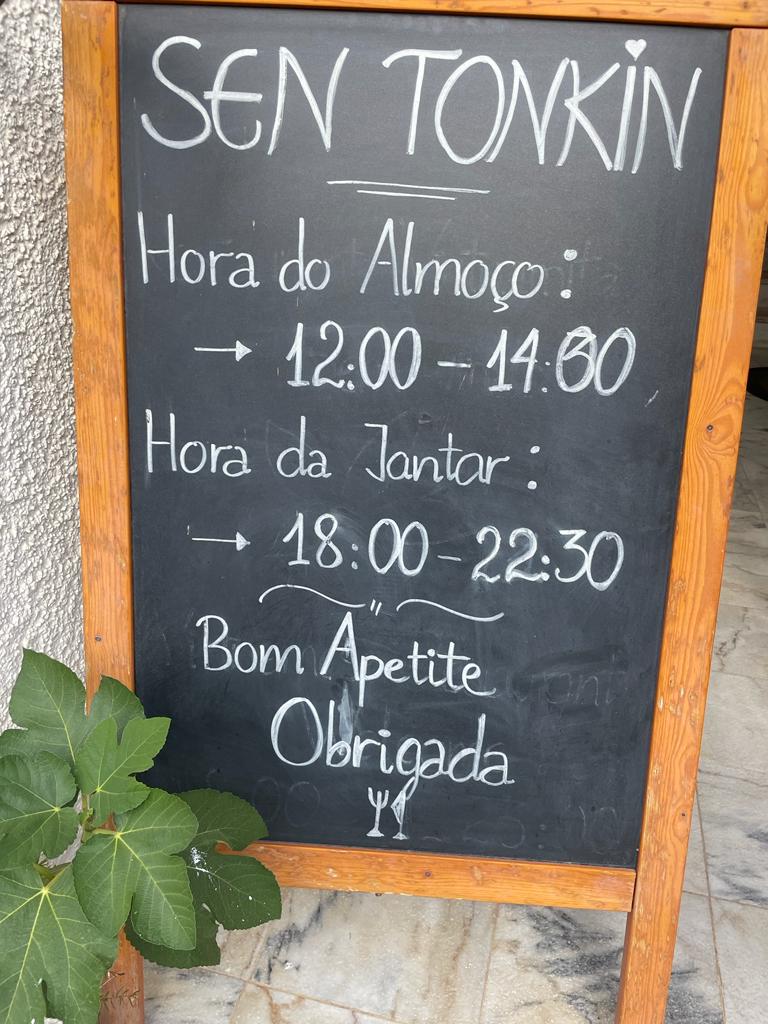 SEN TONKIN
Hora do Almoço:
→ 12:00 - 14:30
Hora da Jantar:
→ 18:00 - 22:30
Bom Apetite
Obrigada